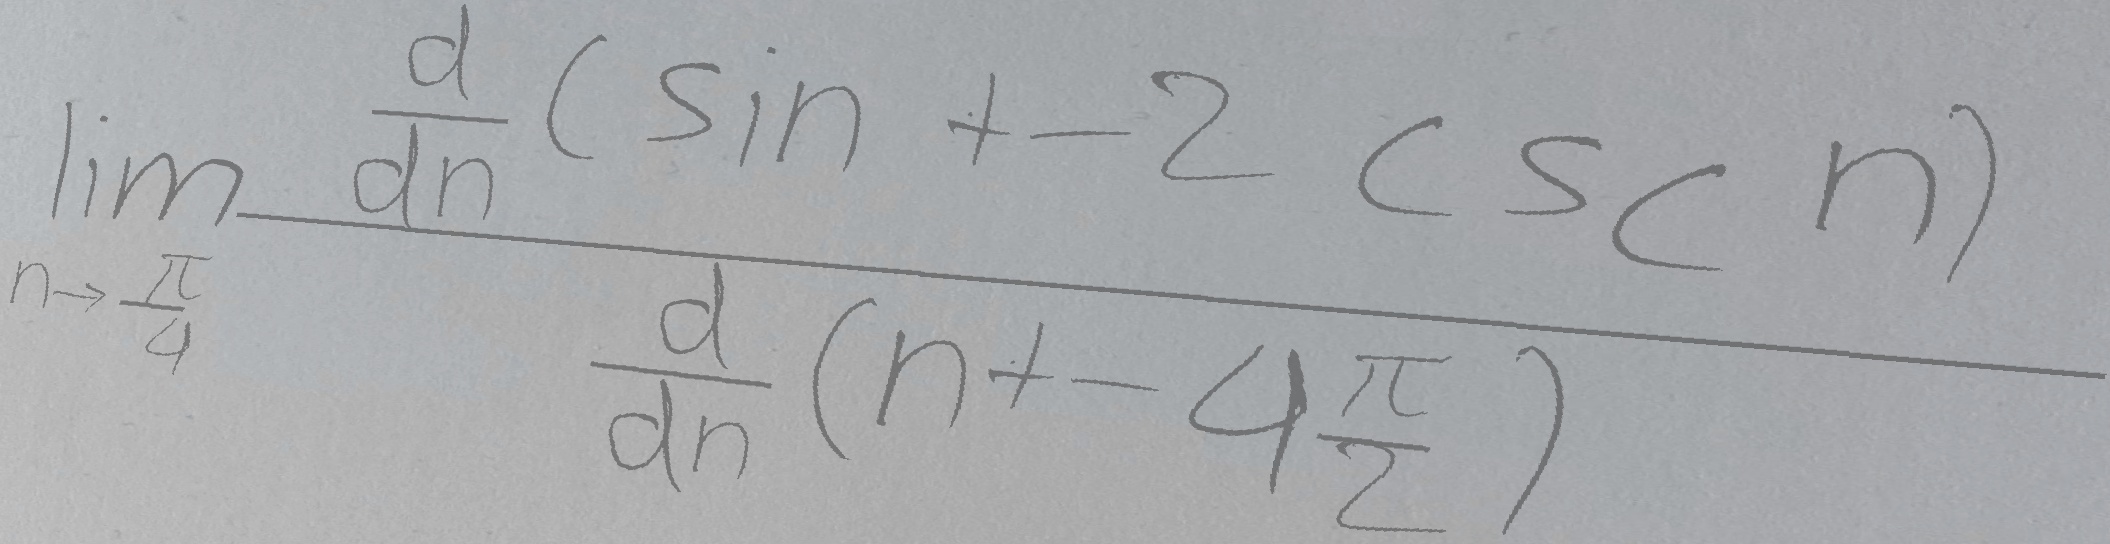 \lim_{n \to \frac{\pi}{4}} \frac{\frac{d}{dn}(\sin + -2 \csc n)}{\frac{d}{dn}(n + -4\frac{\pi}{2})}